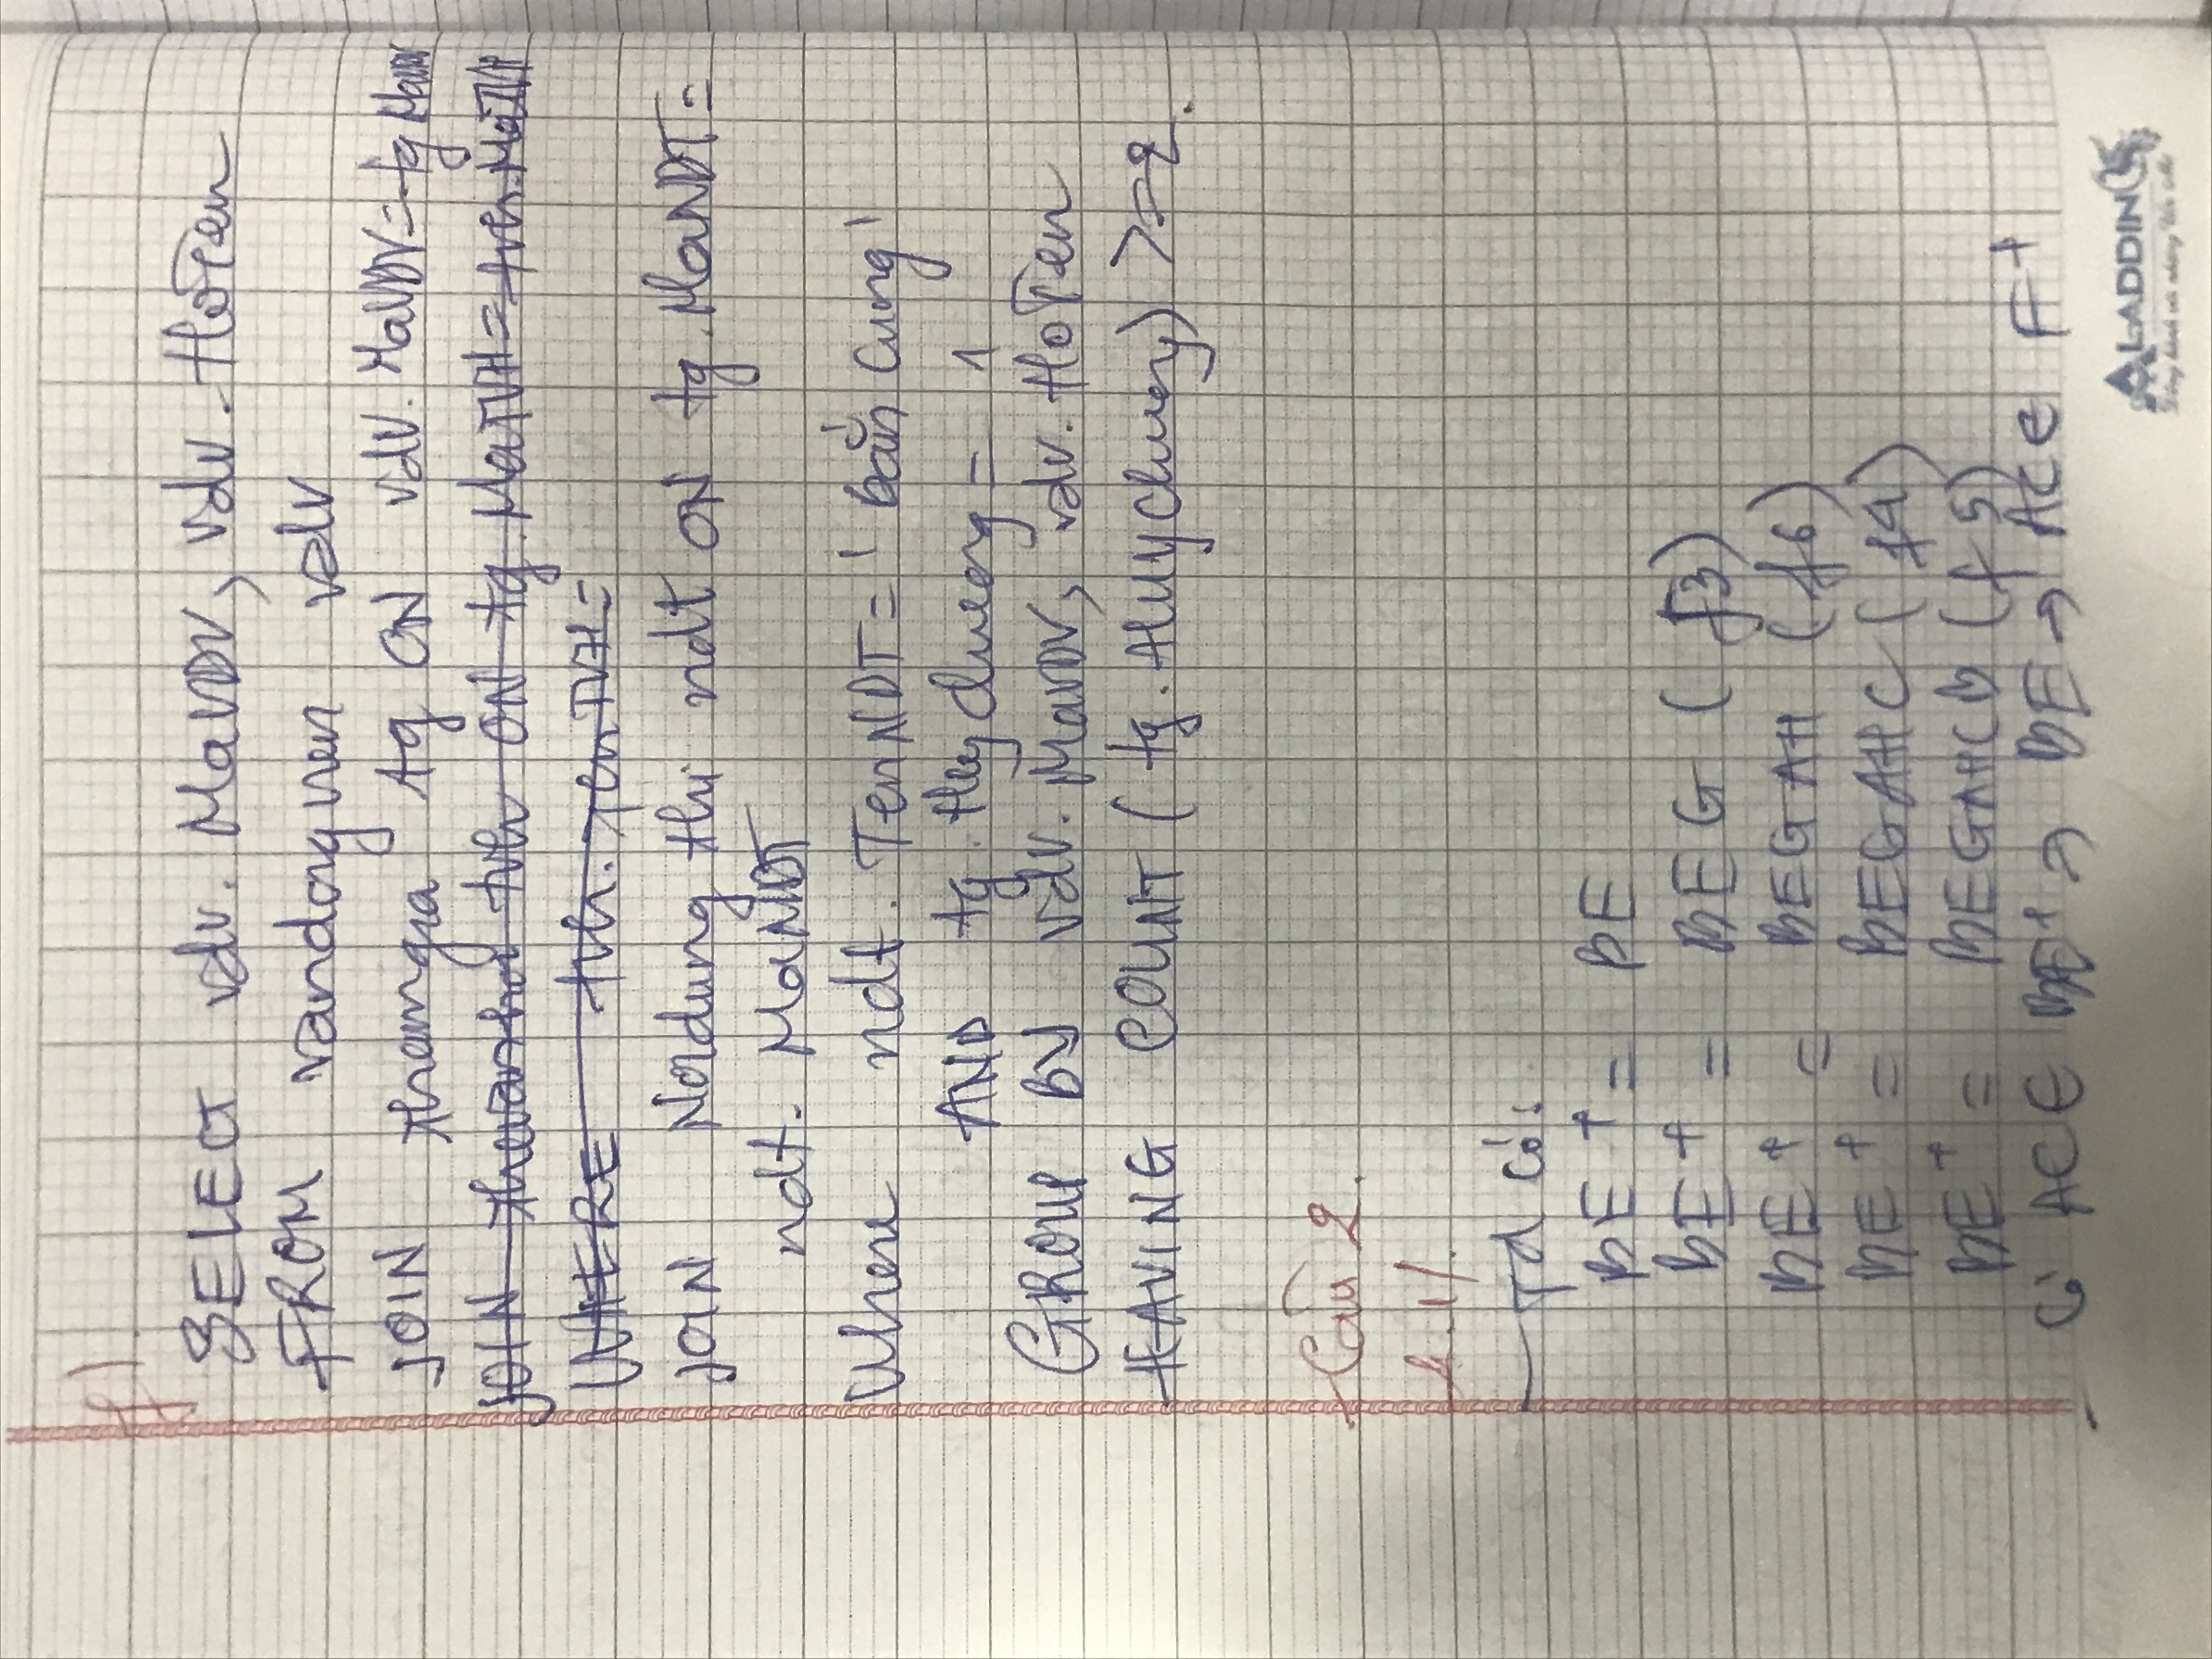 f)
SELECT vdv. MaVDV, vdv. HoTen
FROM vandongvien vdv
JOIN thamgia tg ON vdv. MaVDV = tg MaVDV
JOIN thevanhoi tvh ON tg. MaTVH = tvh. MaTVH
WHERE tvh. TenTVH =
JOIN Noidung thi ndt ON tg. MaNDT =
ndt. MaNDT
Where ndt. TenNDT = ' bắn cung'
AND tg. Huychuong = 1
GROUP BY vdv. MaVDV, vdv. HoTen
HAVING COUNT ( tg. Huychuong) >= 2.
Câu 2.
1/.
Ta có:
BE + = BE
BE + = BEG ( f3)
BE + = BEGAH (f6)
BE + = BEGAHC ( f4)
BE + = BEGAHCD (f5)
Có AC ∈ BE+ => BE → AC ∈ F+
ALADDIN
Đồng hành với những Ước Mơ